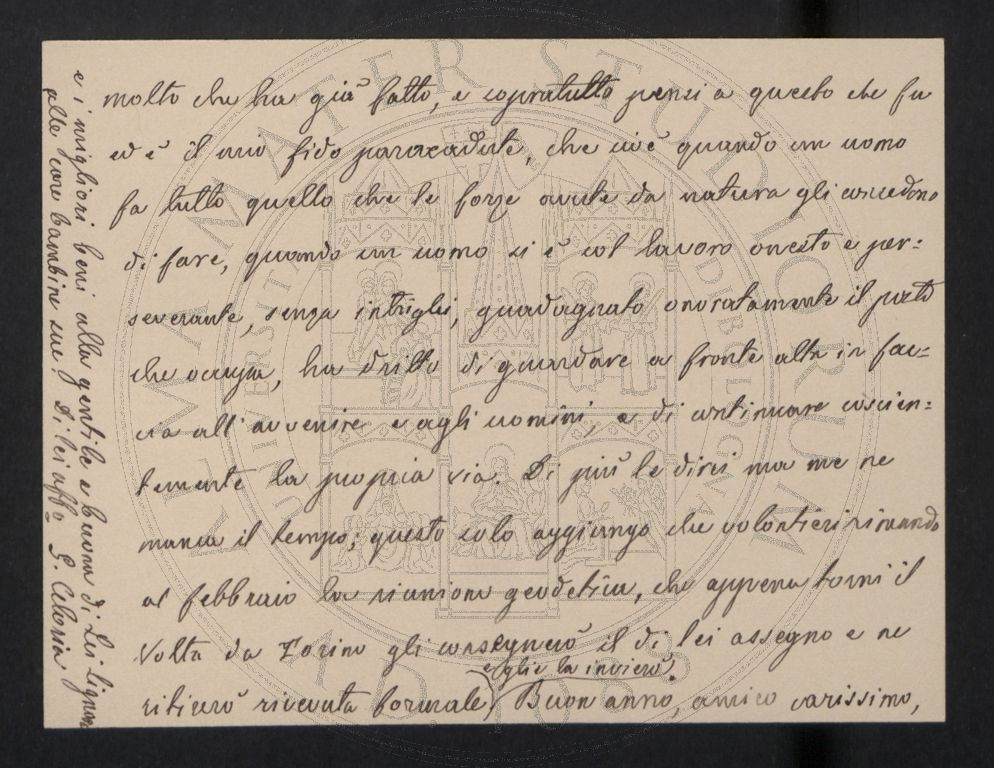 molto che ha già fatto, e sopratutto pensi a questo che fu
ed è il mio fido paracadute, che cioè quando un uomo
fa tutto quello che le forze avute da natura gli concedono
di fare, quando un uomo si è col lavoro onesto e per=
severante, senza intrighi, guadagnato onoratamente il posto
che occupa, ha dritto di guardare a fronte alta in fac=
cia all'avvenire e agli uomini, e di continuare coscien=
temente la propria via. Di più le direi ma me ne
manca il tempo; questo solo aggiungo che volontieri rimando
al febbraio la riunione geodetica, che appena torni il
Volta da Torino gli consegnerò il di lei assegno e ne
ritirerò ricevuta formale) e glie la invierò. Buon anno, amico carissimo,
e i migliori beni alla gentile e buona di Lei Signora
alle care bambine sue. Di lei affo G. Celoria
ALMA MATER STUDIORUM